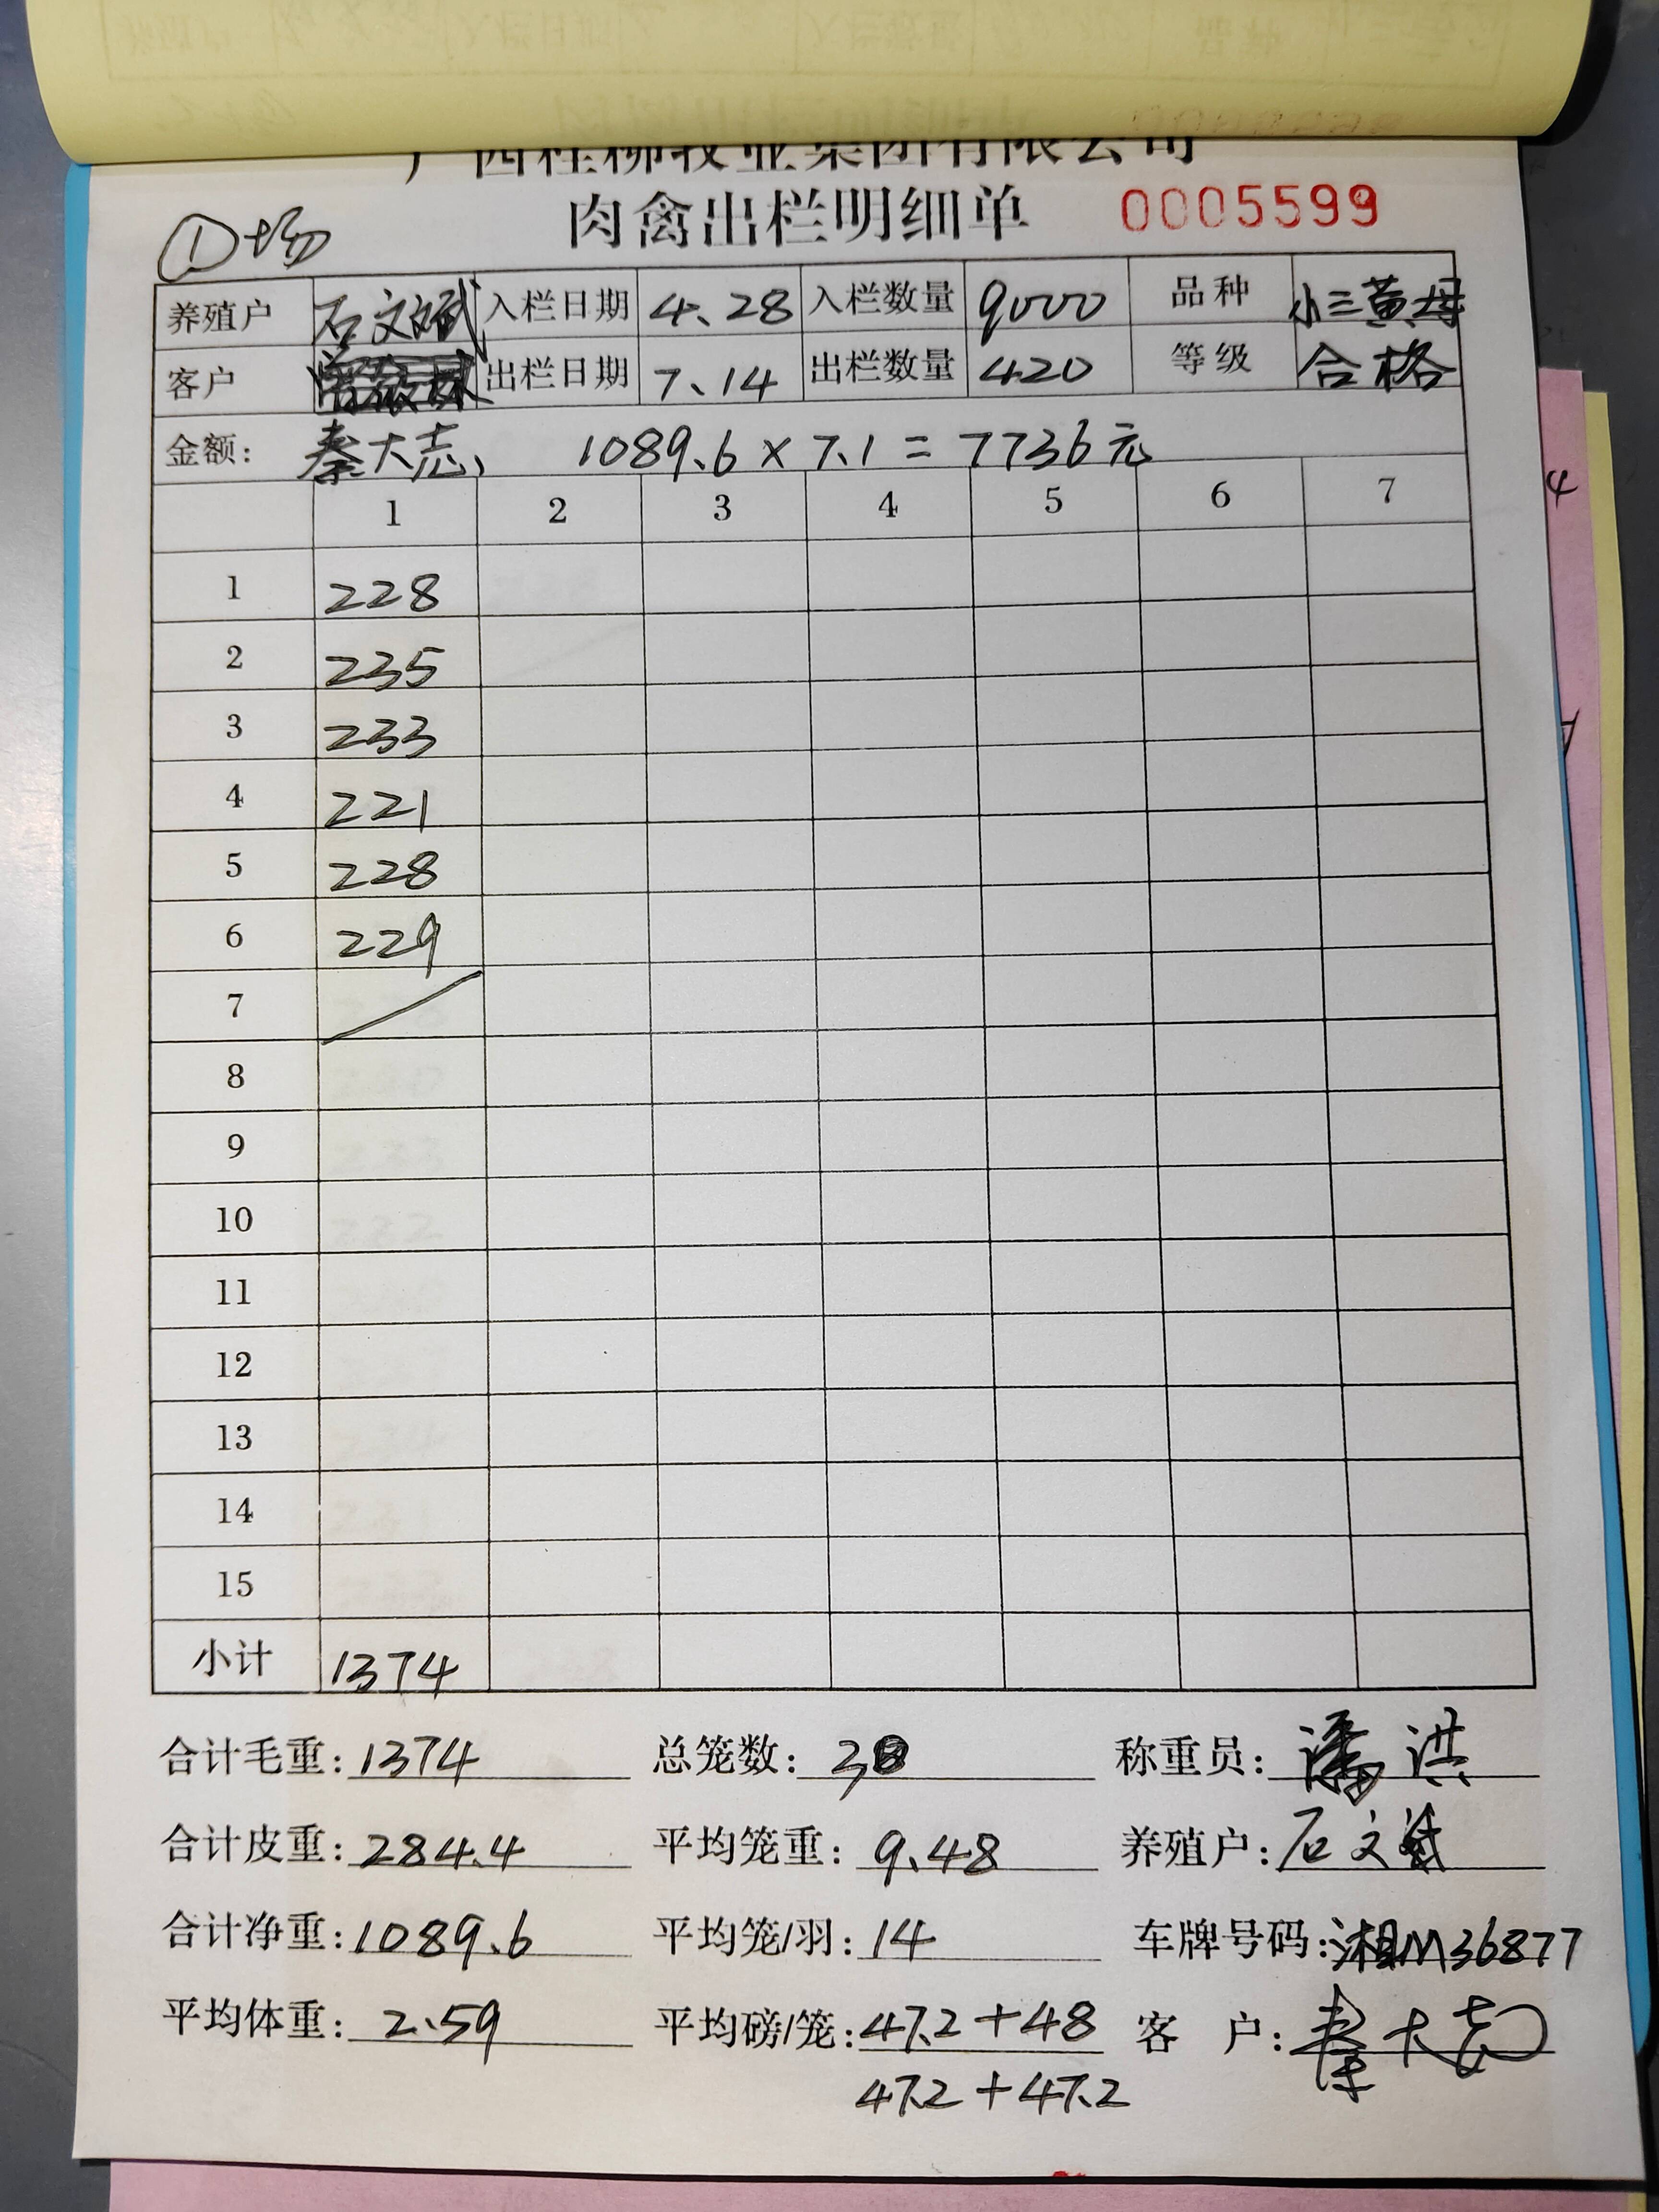 广西桂柳牧业集团有限公司
肉禽出栏明细单 0005599
①场
养殖户 石文斌 入栏日期 4.28 入栏数量 9000 品种 小三黄母
客户 出栏日期 7.14 出栏数量 420 等级 合格
金额: 秦大志、 1089.6 × 7.1 = 7736元
1 2 3 4 5 6 7
1 228
2 235
3 233
4 221
5 228
6 229
7
8
9
10
11
12
13
14
15
小计 1374
合计毛重: 1374 总笼数: 30 称重员: 潘洪
合计皮重: 284.4 平均笼重: 9.48 养殖户: 石文斌
合计净重: 1089.6 平均笼/羽: 14 车牌号码: 湘M36877
平均体重: 2.59 平均磅/笼: 47.2+48 客 户: 秦大志
47.2+47.2